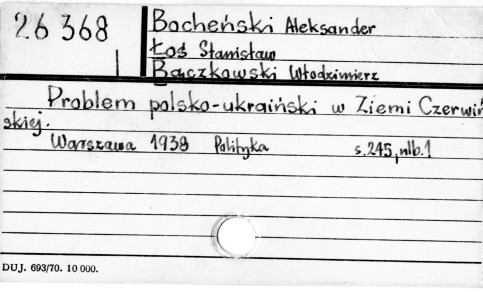 26 368
Bocheński Aleksander
Łoś Stanisław
Bączkowski Włodzimierz
Problem polsko-ukraiński w Ziemi Czerwiń
skiej.
Warszawa 1938 Polityka s.245, nlb.1
DUJ. 693/70. 10 000.